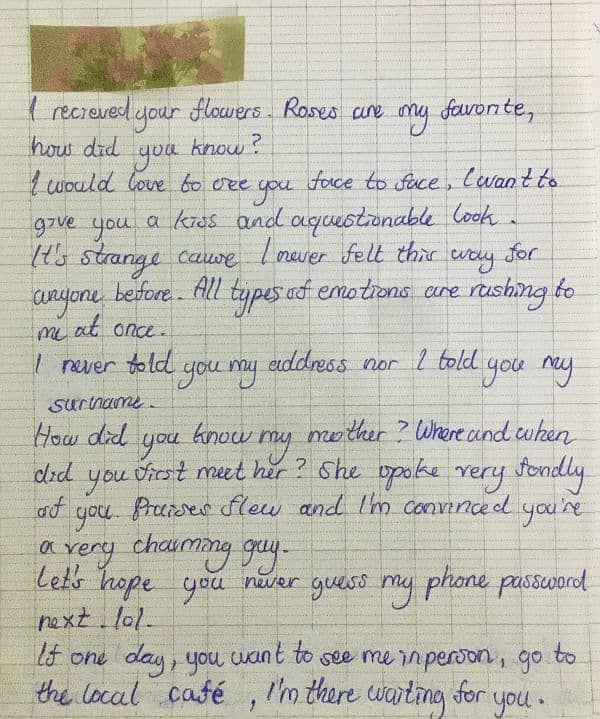 I recieved your flowers. Roses are my favorite,
how did you know?
I would love to see you face to face, I want to
give you a kiss and a questionable look.
It's strange cause I never felt this way for
anyone before. All types of emotions are rushing to
me at once.
I never told you my address nor I told you my
surname.
How did you know my mother? Where and when
did you first meet her? She spoke very fondly
of you. Praises flew and I'm convinced you're
a very charming guy.
Let's hope you never guess my phone password
next. lol.
If one day, you want to see me in person, go to
the local café, I'm there waiting for you.